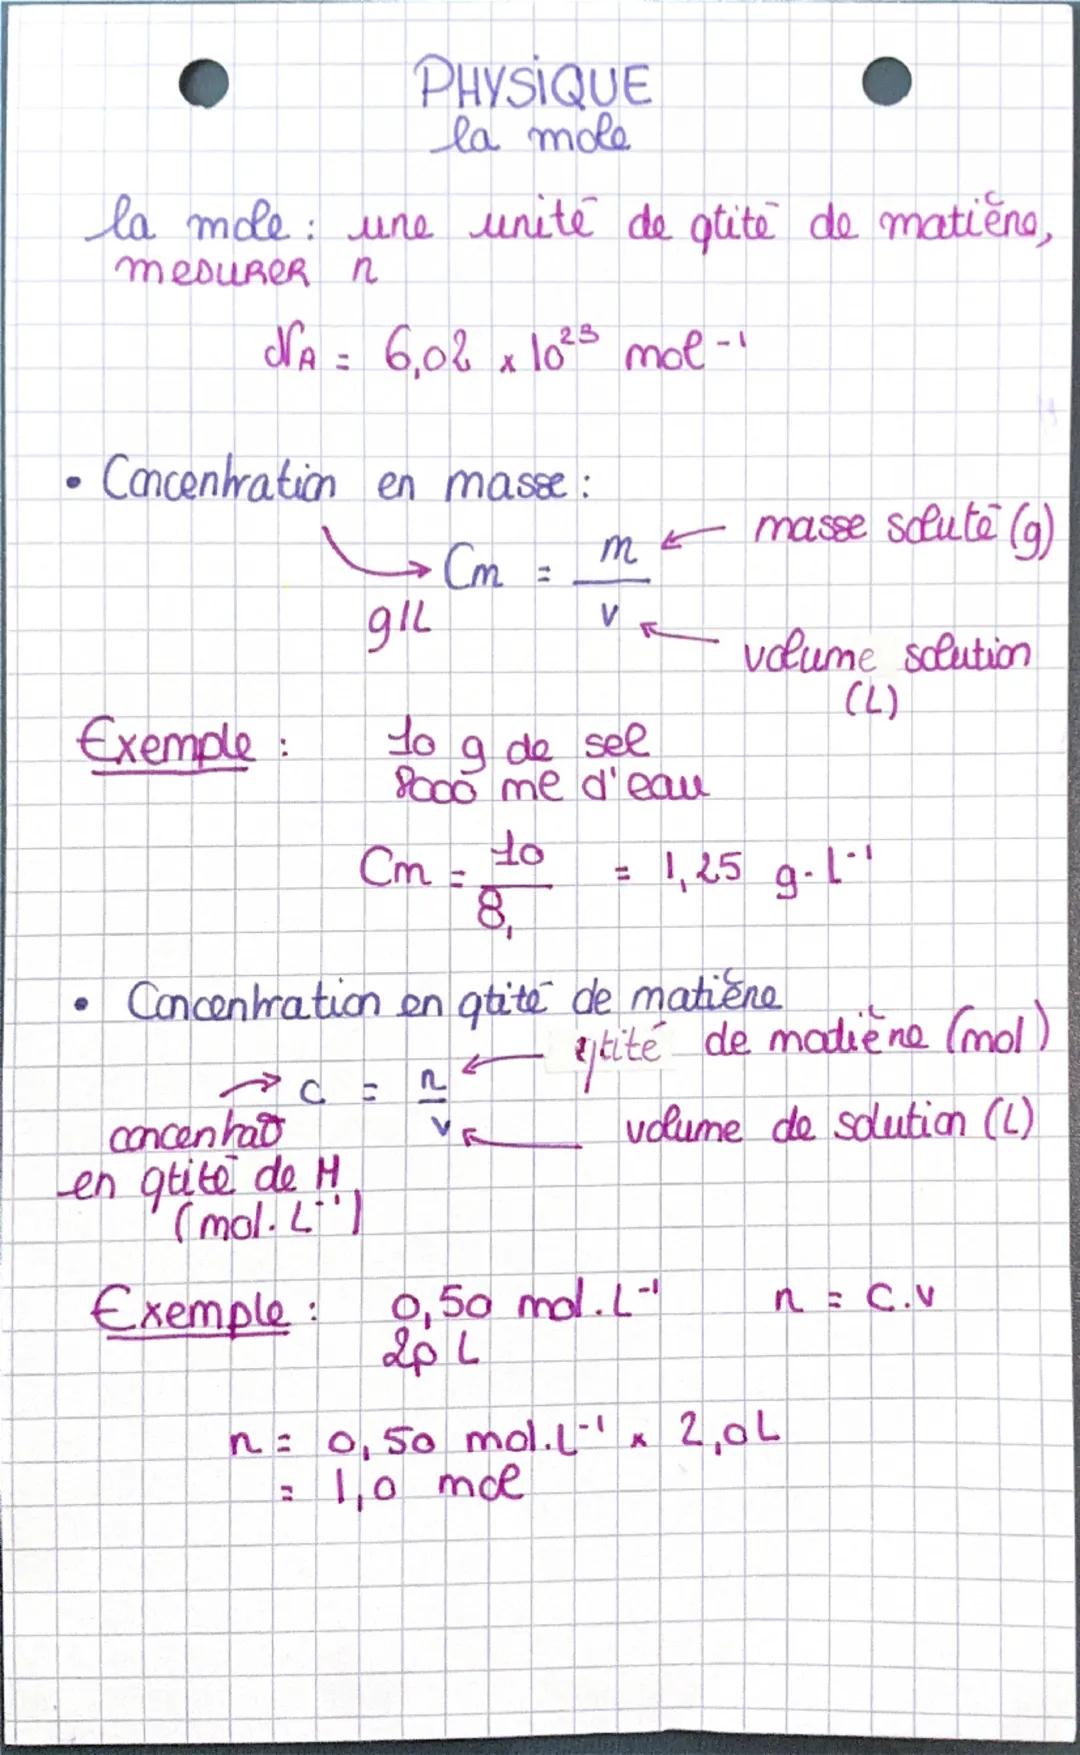 PHYSIQUE
la mole
la mole : une unité de qtité de matière,
mesurer n
NA = 6,02 x 10²³ mol⁻¹
• Concentration en masse :
masse soluté (g)
Cm = m / v
g/L
volume solution
(L)
Exemple : 10 g de sel
8000 ml d'eau
Cm = 10 / 8, = 1,25 g.l⁻¹
• Concentration en qtité de matière
qtité de matière (mol)
c = n / v
concentrat°
volume de solution (L)
en qtité de M
(mol.L⁻¹)
Exemple : 0,50 mol.L⁻¹ n = C.V
2,0 L
n = 0,50 mol.L⁻¹ x 2,0L
= 1,0 mol